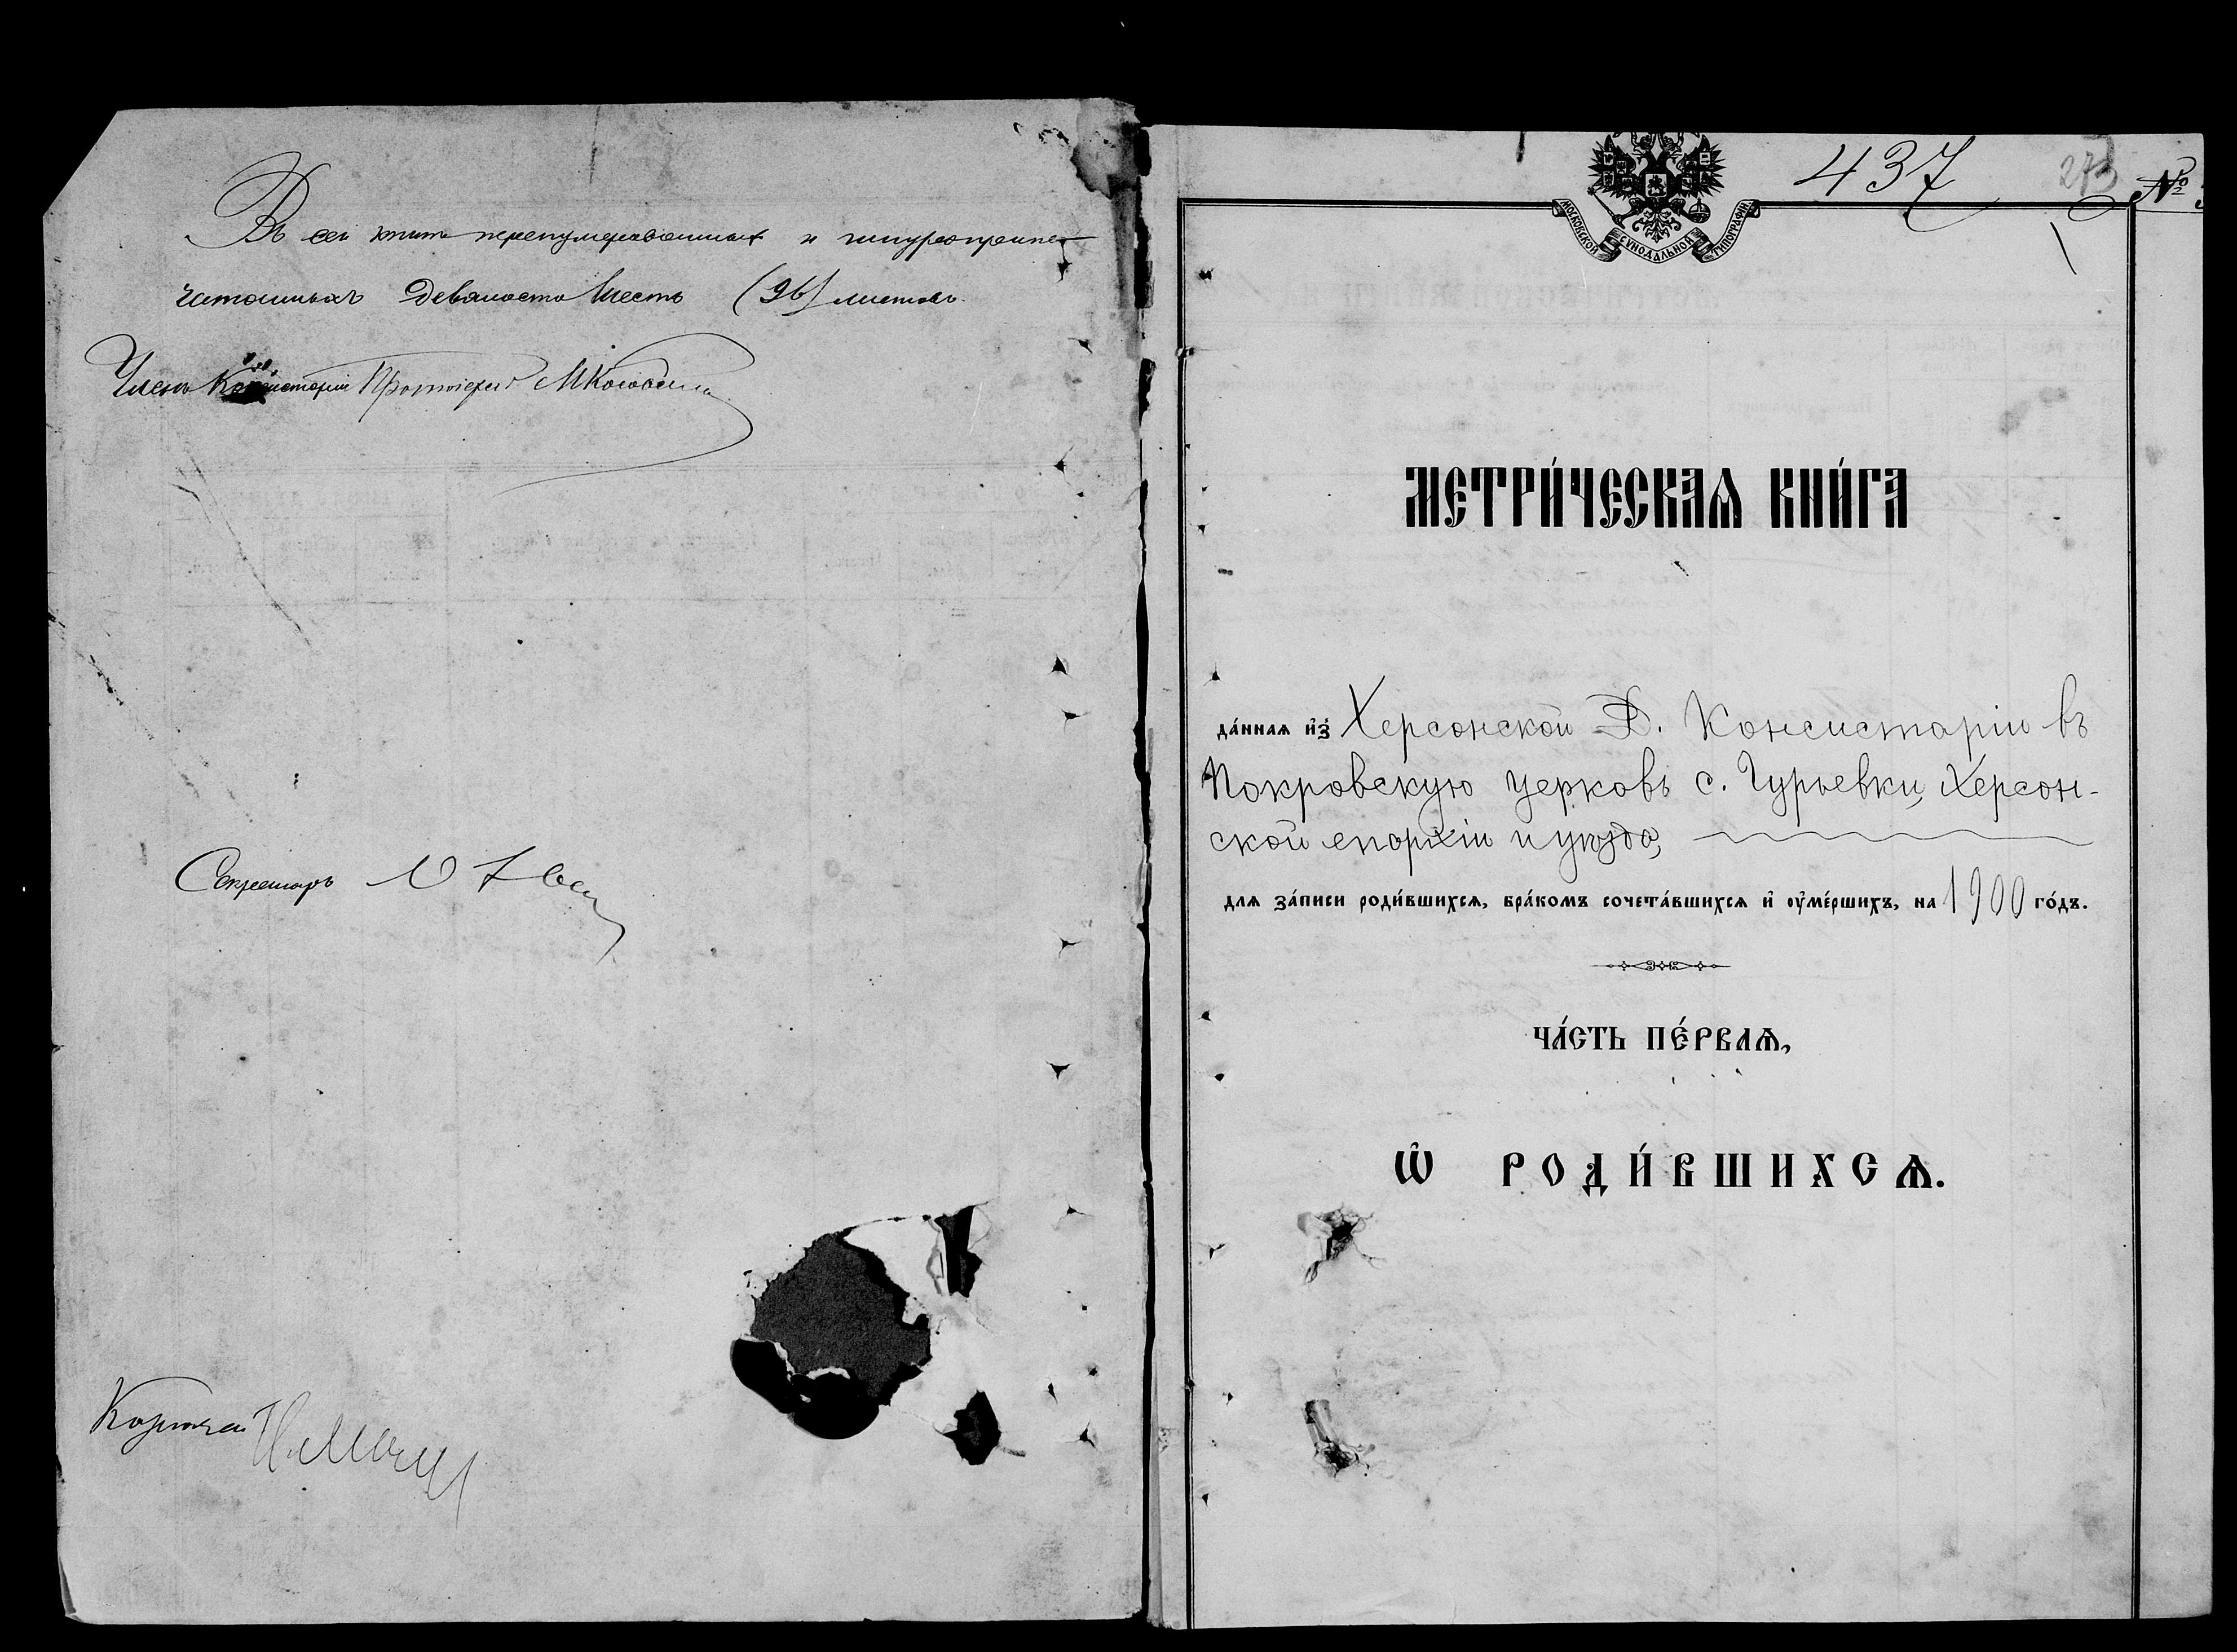 Въ сей книгѣ перенумерованныхъ и шнуроприпе-
чатанныхъ девяносто шесть (96) листовъ.
Членъ Консисторіи Протоіерей
Секретарь
МОСКОВСКОЙ СѴНОДАЛЬНОЙ ТИПОГРАФІИ
437
273
№
МЕТРИ́ЧЕСКАѦ КНИ́ГА
да́ннаѧ и҆з̾ Херсонской Д. Консисторіи въ
Покровскую церковь с. Гурьевки, Херсон-
ской епархіи и уѣзда,
для за́писи роди́вшихсѧ, бра́комъ сочета́вшихсѧ и҆ ᲂу҆ме́ршихъ, на 1900 го́дъ.
ЧА́СТЬ ПЕ́РВАѦ,
Ѽ РОДИ́ВШИХСѦ.